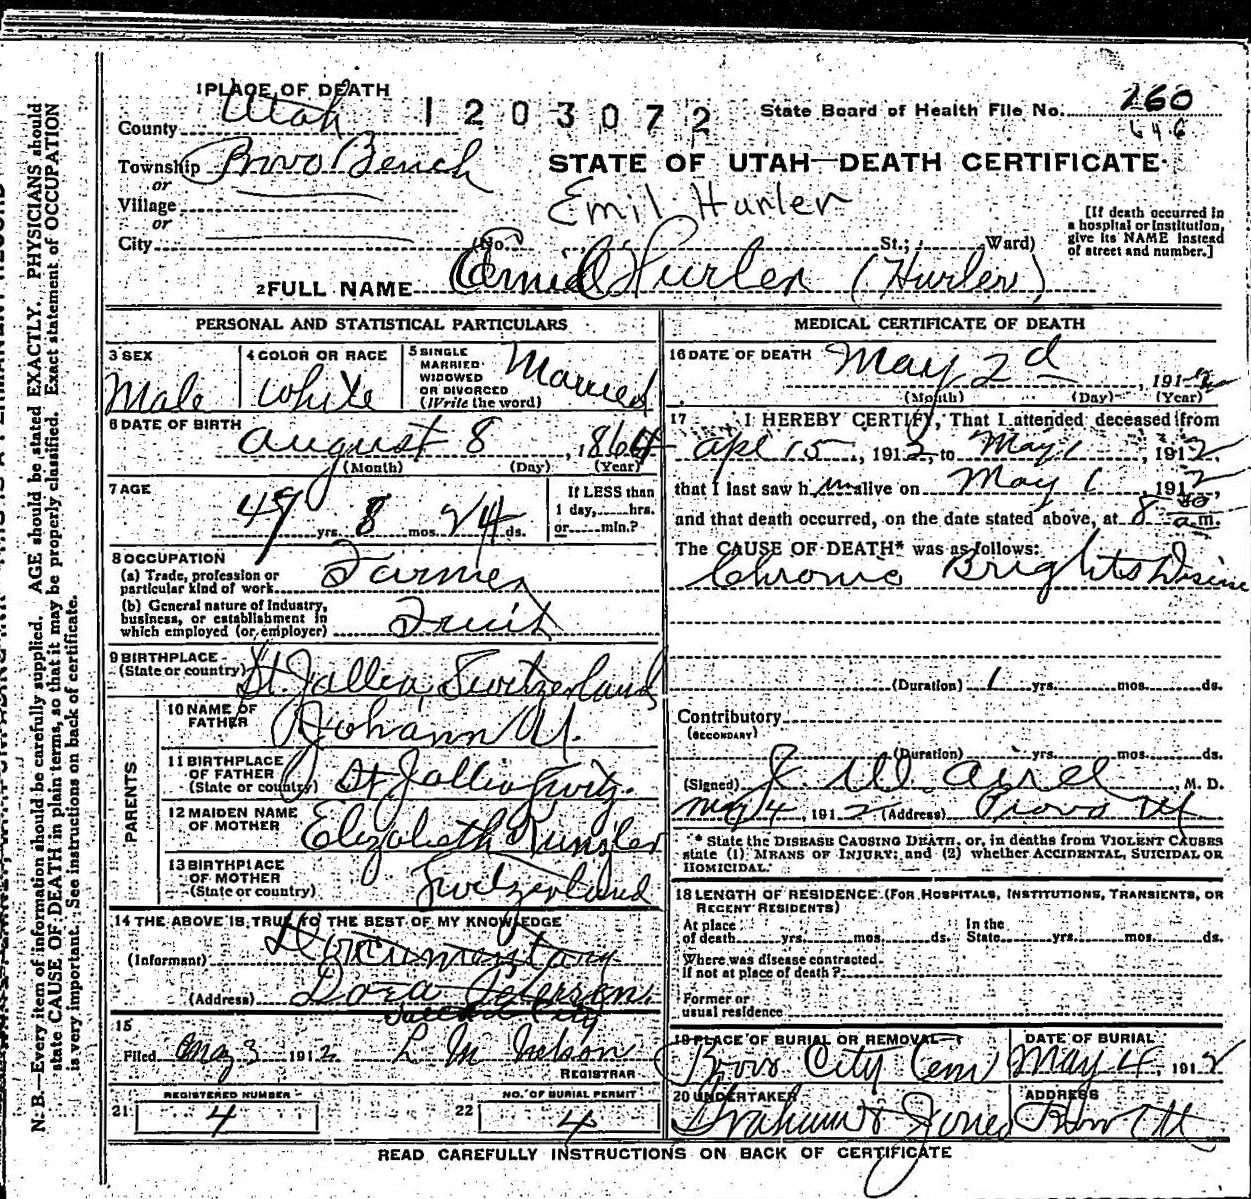 1 PLACE OF DEATH
1203072
State Board of Health File No. 160
646
County Utah
Township Provo Bench
STATE OF UTAH—DEATH CERTIFICATE
or
Village
or
Emil Hurler
City (No. St.; Ward)
[If death occurred in
a hospital or institution,
give its NAME instead
of street and number.]
2 FULL NAME Emil Hurler (Hurler)
PERSONAL AND STATISTICAL PARTICULARS
3 SEX
Male
4 COLOR OR RACE
White
5 SINGLE
MARRIED
WIDOWED
OR DIVORCED
(Write the word)
Married
6 DATE OF BIRTH
August 8, 1864
(Month) (Day) (Year)
7 AGE
yrs. 8 mos. 24 ds.
If LESS than
1 day, hrs.
or min.?
8 OCCUPATION
(a) Trade, profession or
particular kind of work Farmer
(b) General nature of industry,
business, or establishment in
which employed (or employer) Fruit
9 BIRTHPLACE
(State or country) St. Gallen, Switzerland
PARENTS
10 NAME OF
FATHER Johann U.
11 BIRTHPLACE
OF FATHER
(State or country) St Gallen Switz.
12 MAIDEN NAME
OF MOTHER Elizabeth
13 BIRTHPLACE
OF MOTHER
(State or country) Switzerland
14 THE ABOVE IS TRUE TO THE BEST OF MY KNOWLEDGE
(Informant) Documentary
(Address) Dora Peterson
City
15
Filed May 3 1912 L M Nelson
REGISTRAR
REGISTERED NUMBER
21 4
NO. OF BURIAL PERMIT
22 4
MEDICAL CERTIFICATE OF DEATH
16 DATE OF DEATH May 2d, 1912
(Month) (Day) (Year)
17 I HEREBY CERTIFY, That I attended deceased from
Apl 15, 1912, to May 1, 1912
that I last saw him alive on May 1 1912,
and that death occurred, on the date stated above, at 8 30 a.m.
The CAUSE OF DEATH* was as follows:
Chronic Brights Disease
(Duration) 1 yrs. mos. ds.
Contributory
(SECONDARY)
(Duration) yrs. mos. ds.
(Signed) J. W. Aird, M. D.
May 4, 1912 (Address) Provo Ut
* State the DISEASE CAUSING DEATH, or, in deaths from VIOLENT CAUSES
state (1) MEANS OF INJURY; and (2) whether ACCIDENTAL, SUICIDAL OR
HOMICIDAL.
18 LENGTH OF RESIDENCE (FOR HOSPITALS, INSTITUTIONS, TRANSIENTS, OR
RECENT RESIDENTS)
At place
of death yrs. mos. ds.
In the
State yrs. mos. ds.
Where was disease contracted
if not at place of death?
Former or
usual residence
19 PLACE OF BURIAL OR REMOVAL
Provo City Cem
DATE OF BURIAL
May 4, 1912
20 UNDERTAKER
Graham & Jones
ADDRESS
Provo Ut
READ CAREFULLY INSTRUCTIONS ON BACK OF CERTIFICATE
N. B.—Every item of information should be carefully supplied. AGE should be stated EXACTLY. PHYSICIANS should
state CAUSE OF DEATH in plain terms, so that it may be properly classified. Exact statement of OCCUPATION
is very important. See instructions on back of certificate.